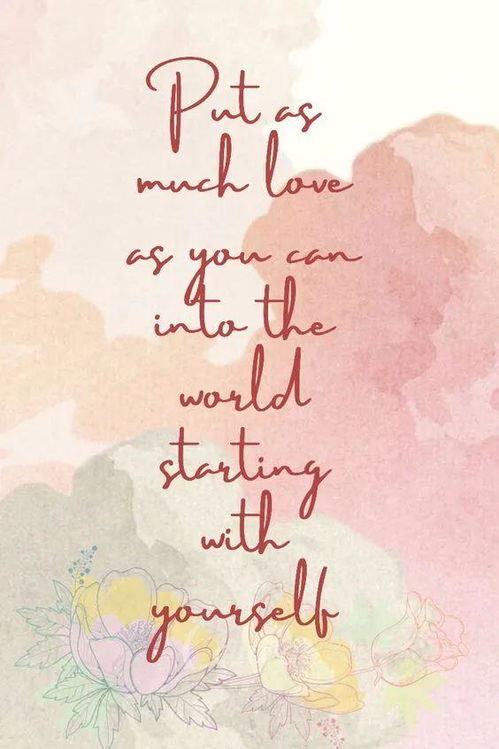 Put as
much love
as you can
into the
world
starting
with
yourself